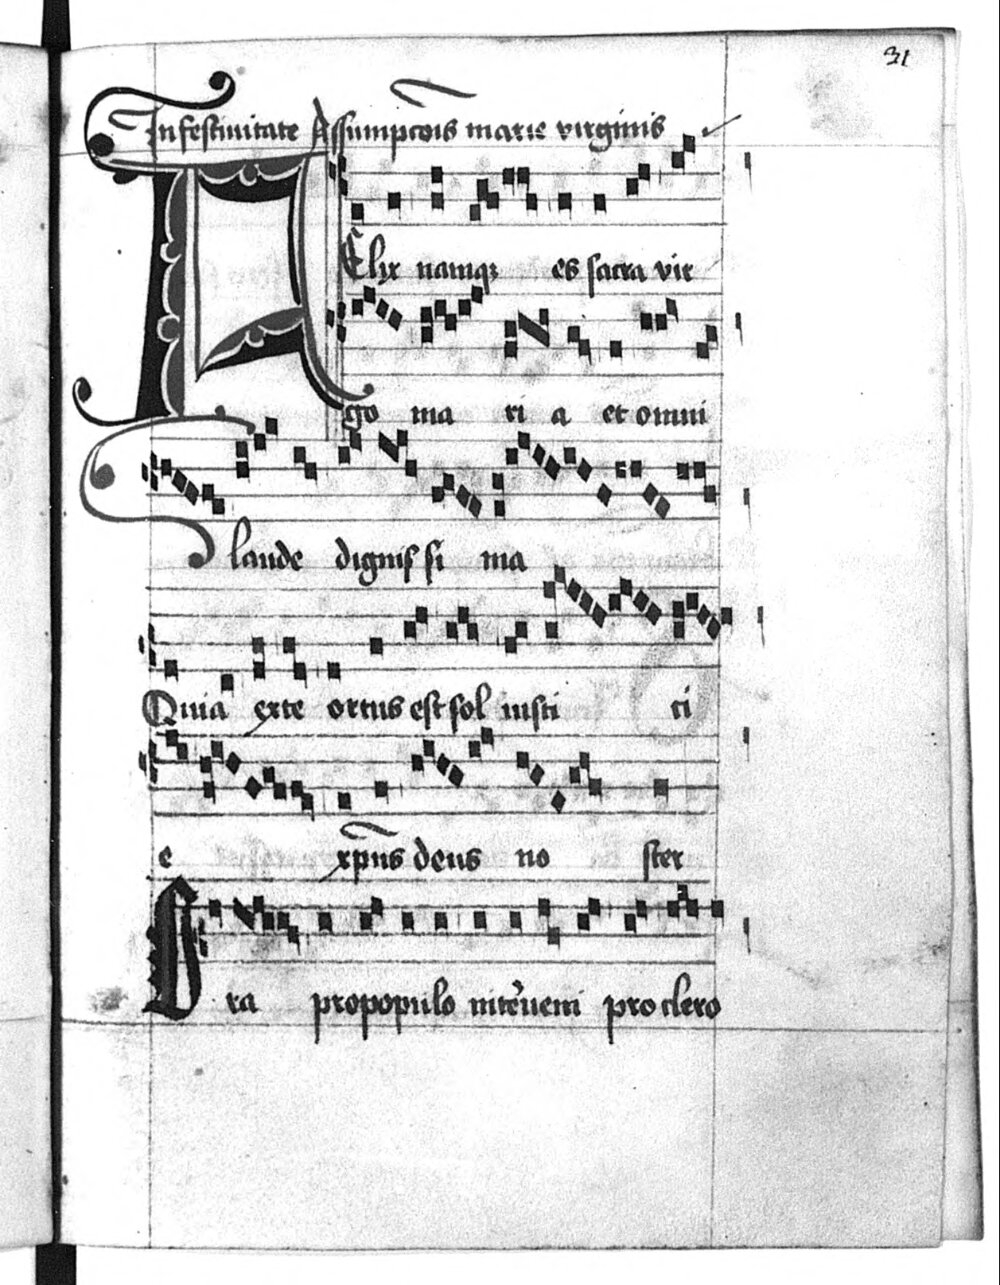 31
In festivitate Assumpcōis marie virginis
FElix namqꝫ es sacra vir
go ma ri a et omni
laude dignis si ma
Quia exte ortus est sol iusti ti
e xp̄us deus no ster
Ora pro populo interueni pro clero